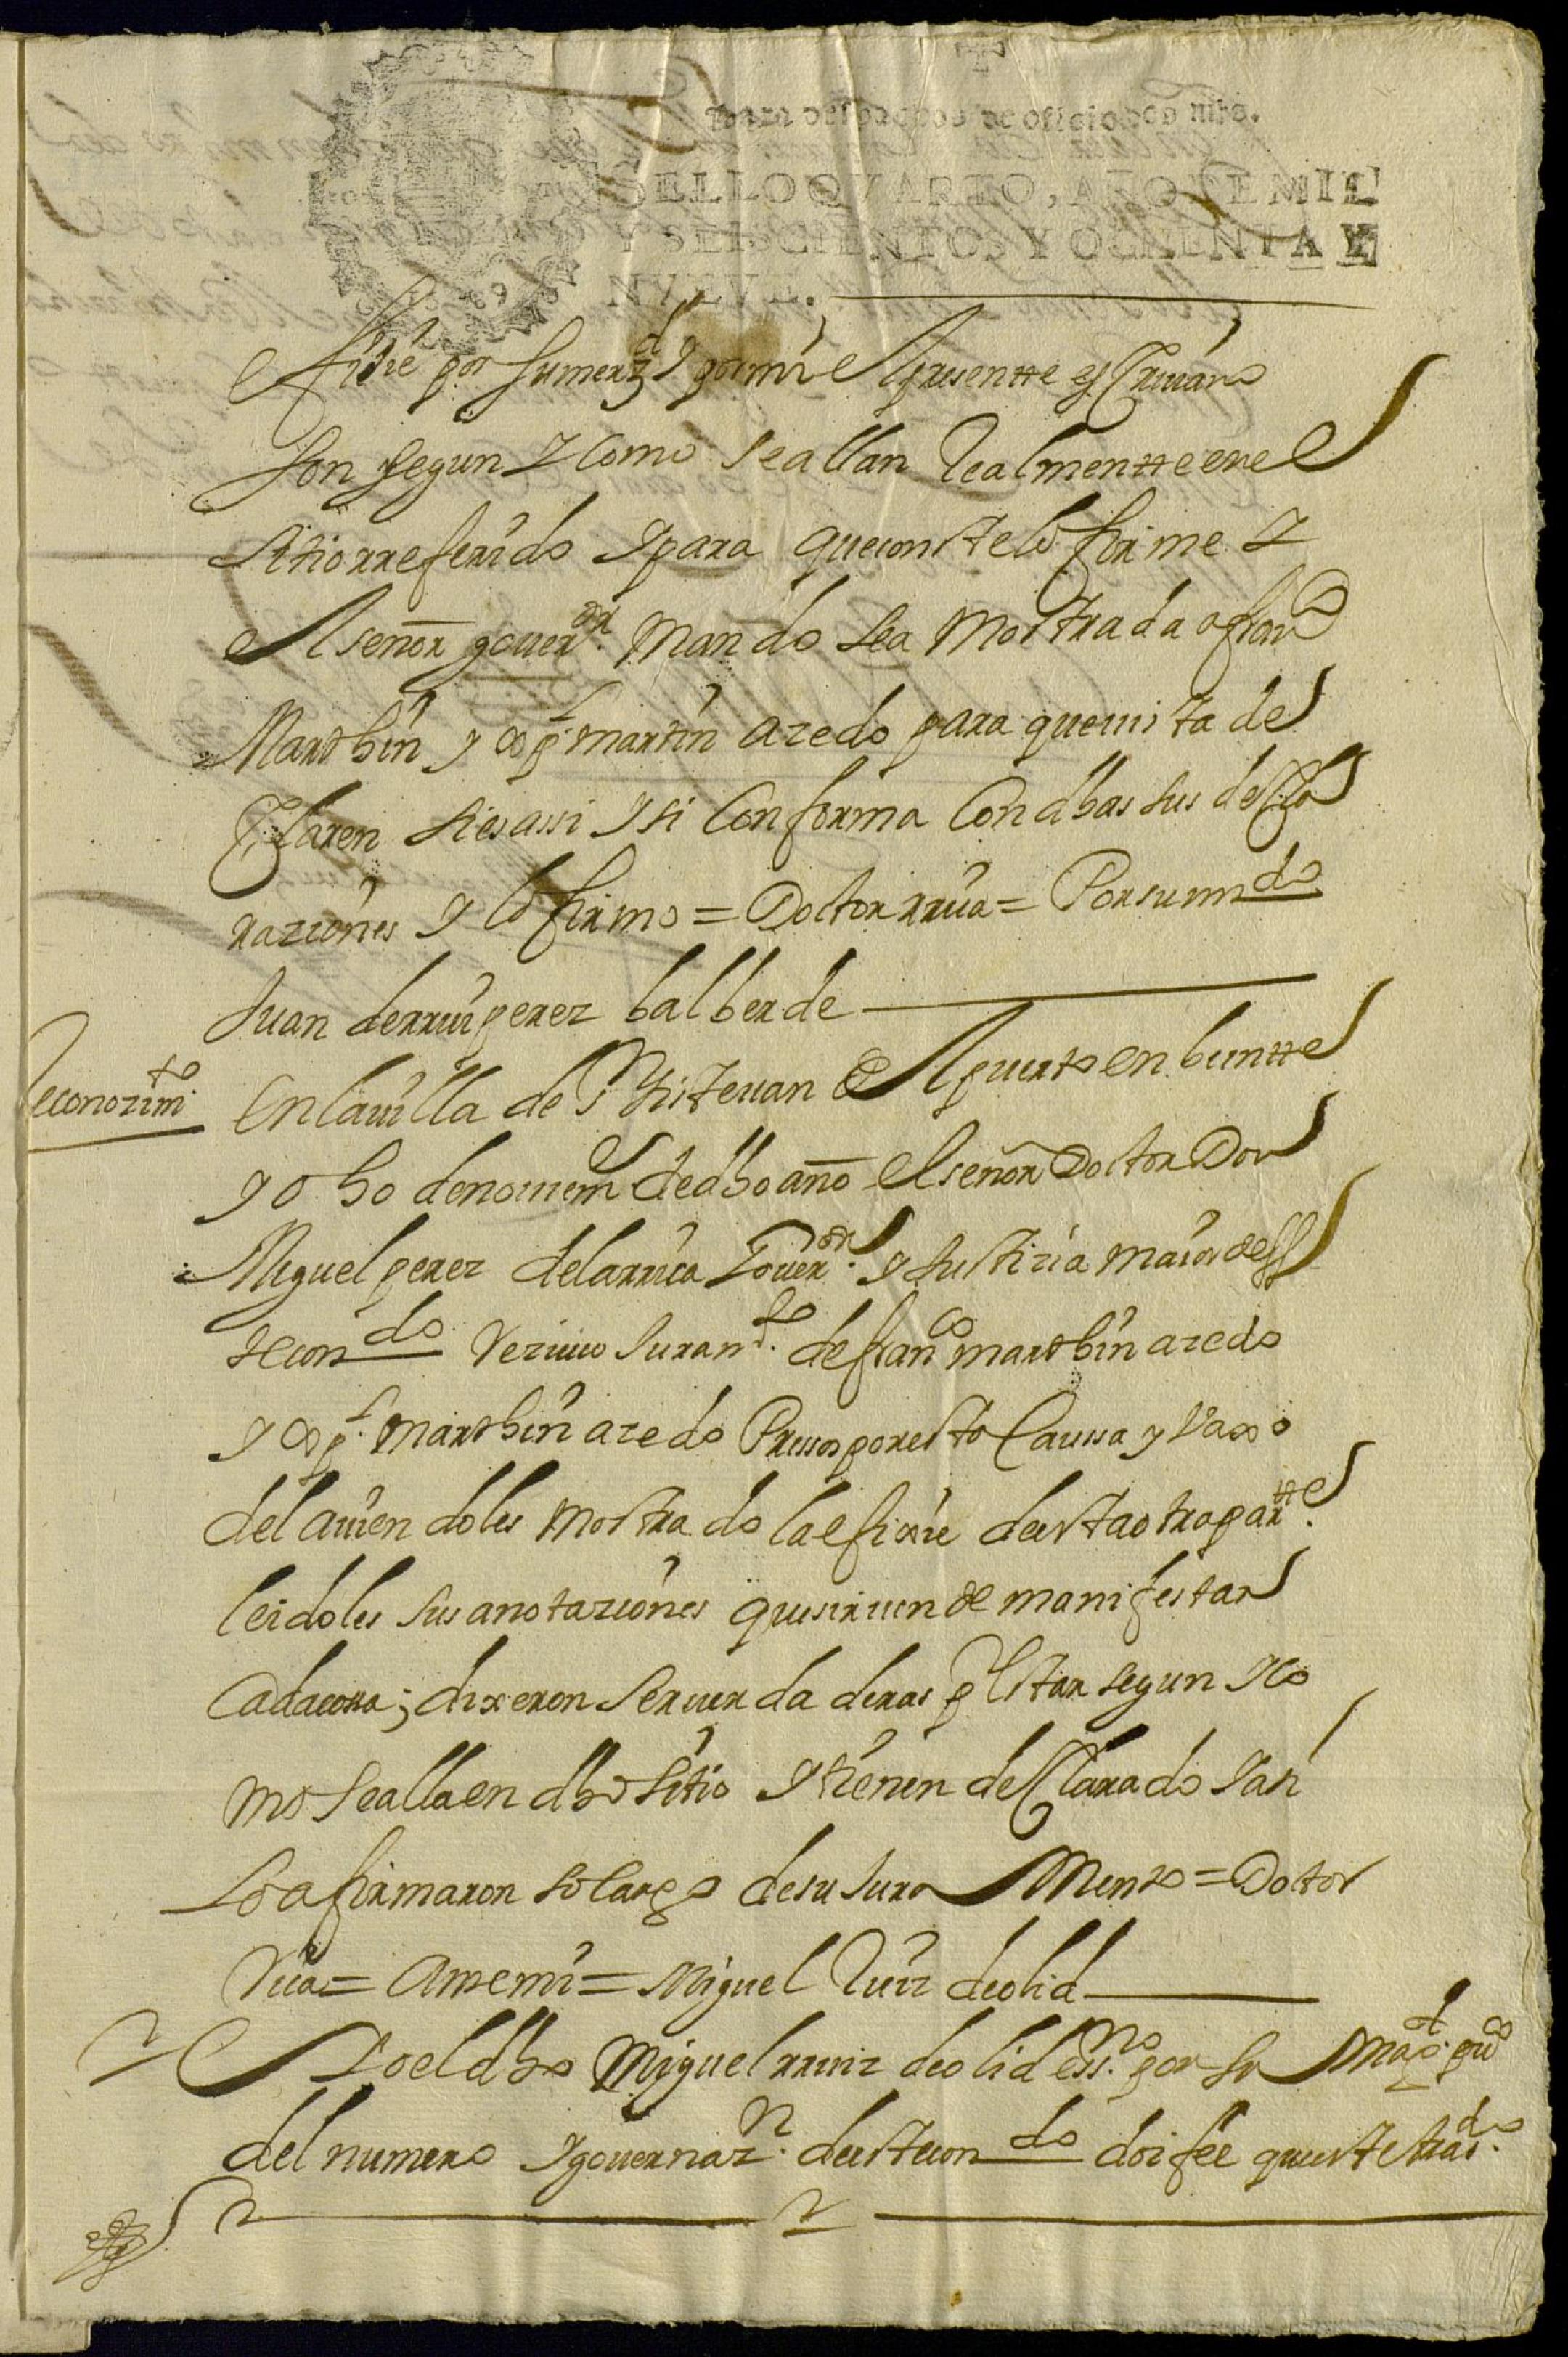 Para despachos de oficio dos mrs.
SELLO QVARTO, AÑO DE MIL
Y SEISCIENTOS Y OCHENTA Y
NVEVE.
efixie por sumerzd y por mi el presentte escriuano
son segun y como se allan realmentte en el
sitio rreferido y para que conste lo firme y
el señor goueror mando sea mostrada a franco
Marthin y xpl martin azedo para que uista de
Claren si es assi y si Conforma Con dhas sus decla
raziones y lo firmo = Doctor rrua = Por su mdo
Juan de rrui perez balberde
reconozimto
En la uilla de s esteuan el puerto en beintte
y o ho de nouiem de dho año el señor Doctor Don
Miguel perez de la rrua Goueror y Justizia maior deste
condo reziuio Juramto de franco marthin azedo
y xpl marthin azedo Pressos por esta Caussa y vaxo
del auiendoles mostrado la efixie de esta otra partte
leidoles sus anotaziones que siruen de manifestar
Cada cossa; dixeron ser uerdaderas y estar segun y co
mo se alla en dho sitio y tienen de Clarado y asi
Lo afirmaron so cargo de su Juramento = Doctor
Rua = Ante mi = Miguel Ruiz de olid
Yo el dho Miguel rruiz de olid essno por su magd puco
del numero y gouernazn de este condo doi fee que este trasdo